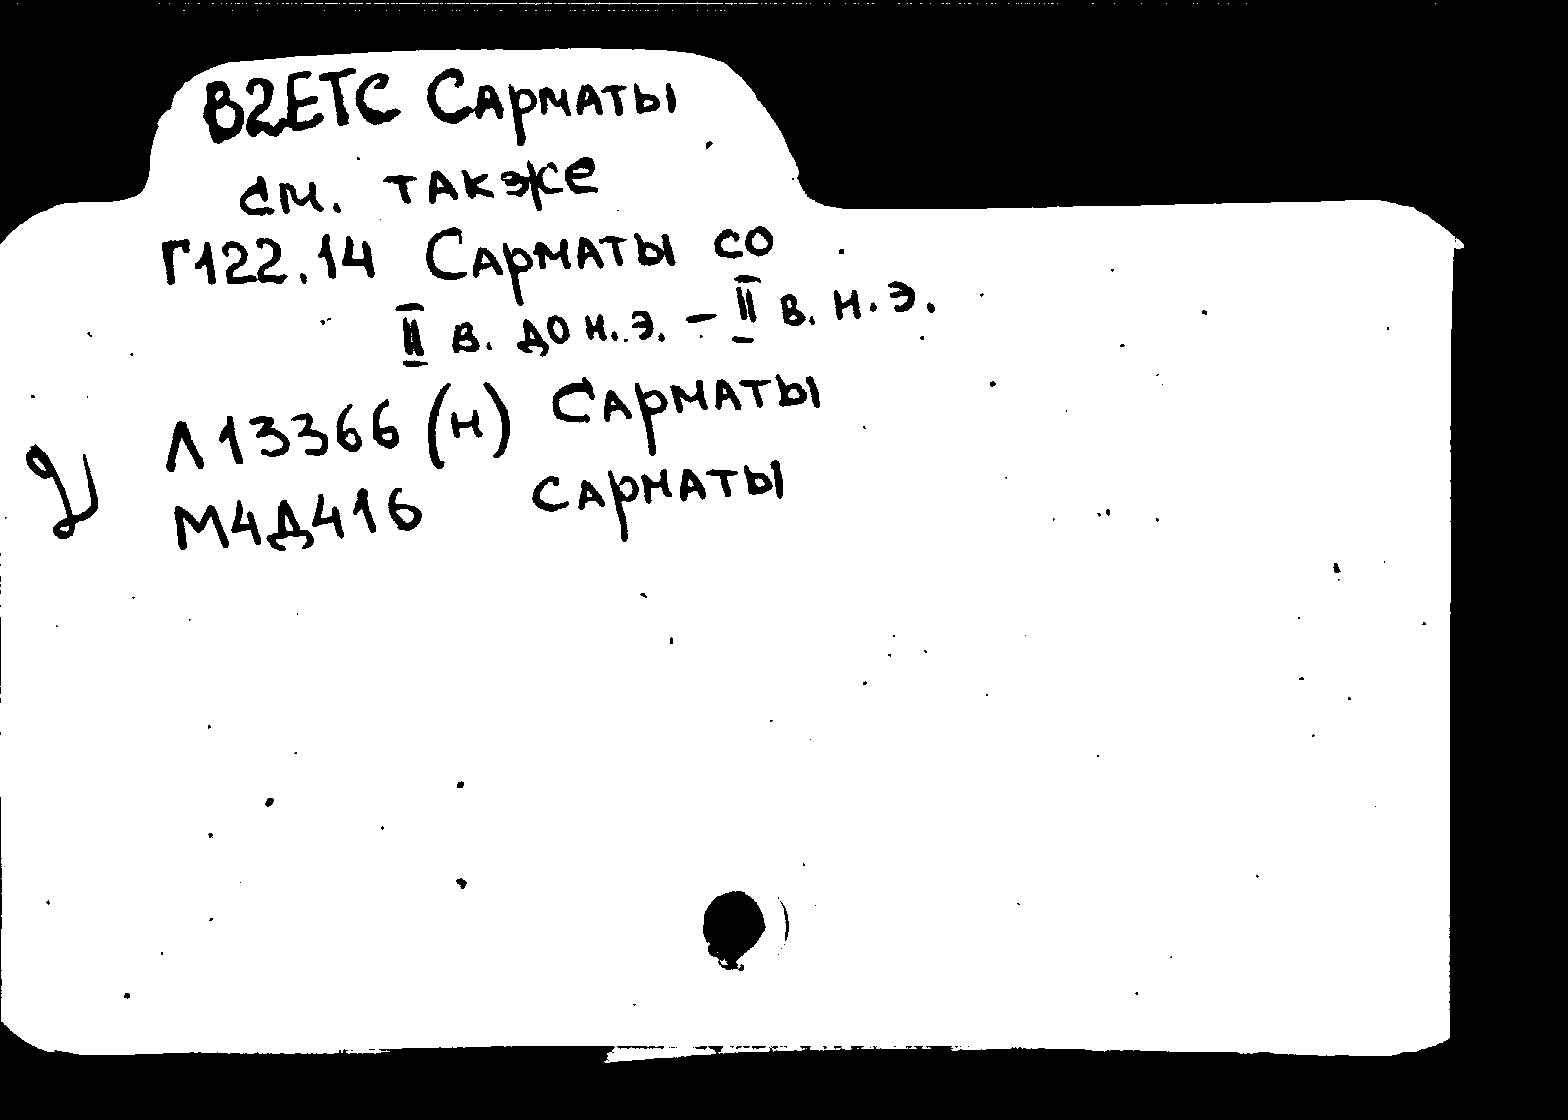 В2ЕТС Сарматы
см. также
Г122.14 Сарматы со
II в. до н.э. – II в. н.э.
Л13366 (н) Сарматы
М4Д416 Сарматы